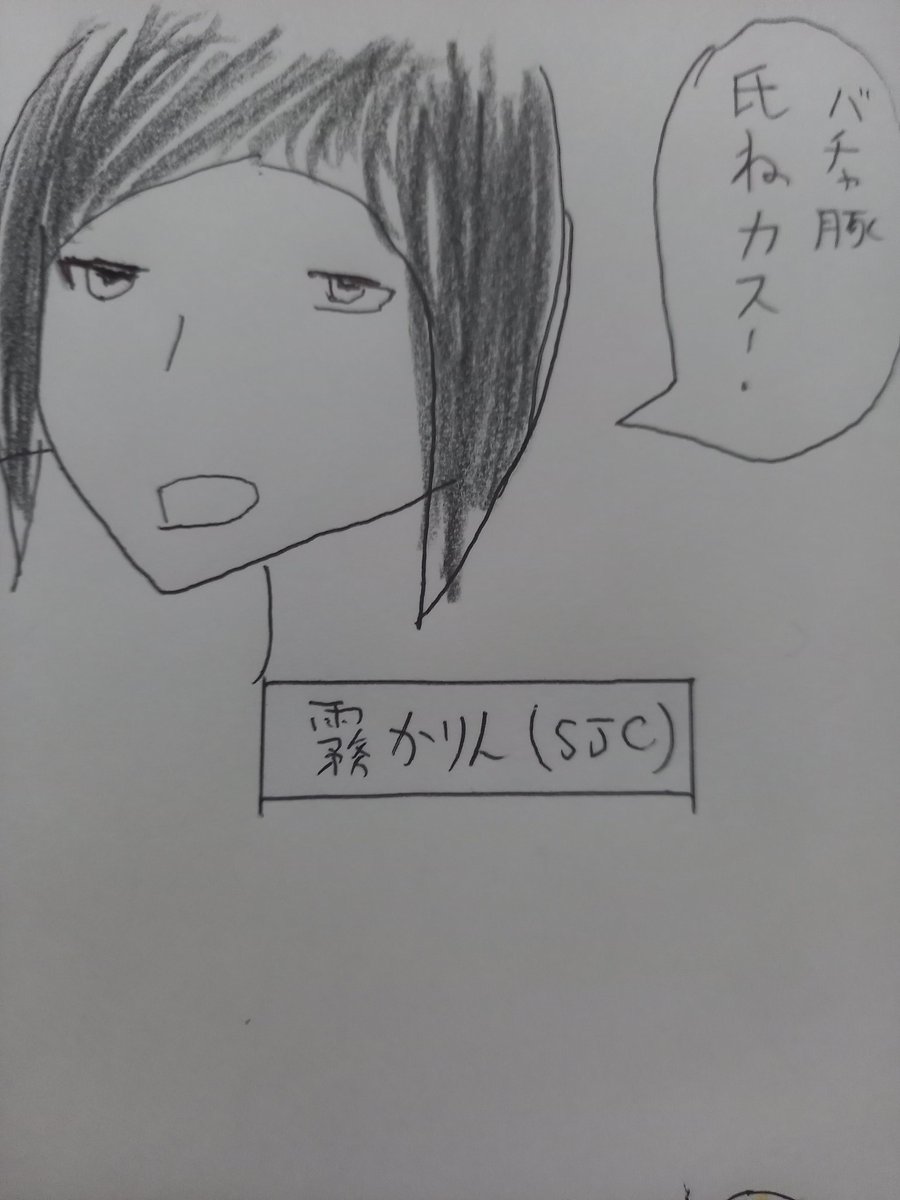 バチャ豚
氏ねカスー.
霧かりん(SJC)